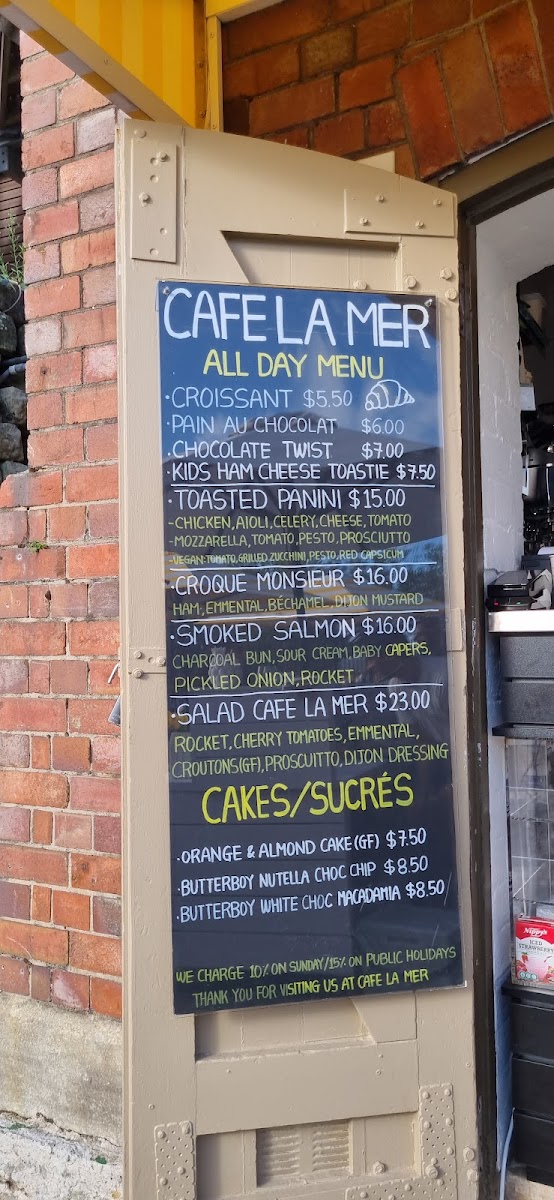 CAFE LA MER
ALL DAY MENU
·CROISSANT $5.50
·PAIN AU CHOCOLAT $6.00
·CHOCOLATE TWIST $7.00
·KIDS HAM CHEESE TOASTIE $7.50
·TOASTED PANINI $15.00
-CHICKEN, AIOLI, CELERY, CHEESE, TOMATO
-MOZZARELLA, TOMATO, PESTO, PROSCIUTTO
-VEGAN: TOMATO, GRILLED ZUCCHINI, PESTO, RED CAPSICUM
·CROQUE MONSIEUR $16.00
HAM, EMMENTAL, BÉCHAMEL, DIJON MUSTARD
·SMOKED SALMON $16.00
CHARCOAL BUN, SOUR CREAM, BABY CAPERS,
PICKLED ONION, ROCKET
·SALAD CAFE LA MER $23.00
ROCKET, CHERRY TOMATOES, EMMENTAL,
CROUTONS(GF), PROSCUITTO, DIJON DRESSING
CAKES/SUCRÉS
·ORANGE & ALMOND CAKE (GF) $7.50
·BUTTERBOY NUTELLA CHOC CHIP $8.50
·BUTTERBOY WHITE CHOC MACADAMIA $8.50
WE CHARGE 10% ON SUNDAY/15% ON PUBLIC HOLIDAYS
THANK YOU FOR VISITING US AT CAFE LA MER
Nippy's
ICED
STRAWBERRY